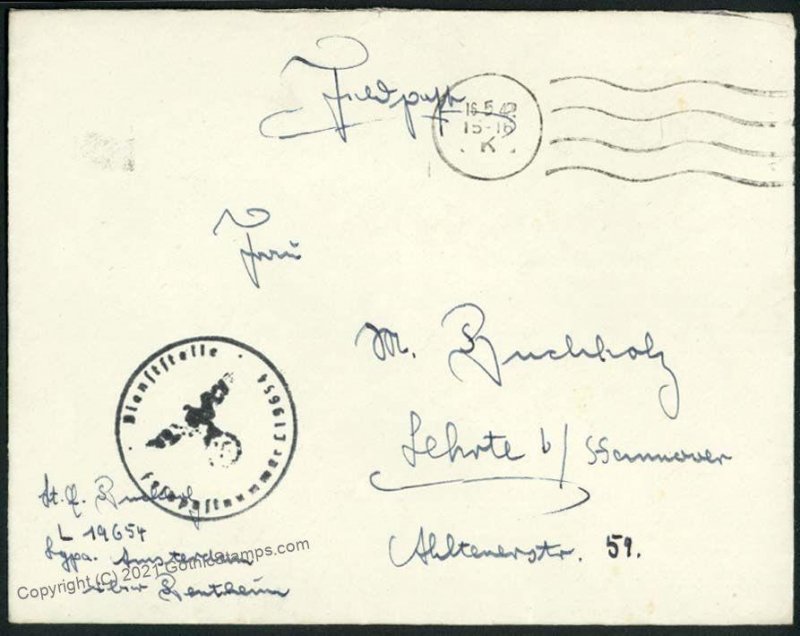 Feldpost
16.5.42
15-16
K
Frau
M. Buchholz
Lehrte b/ Hannover
Ahltenerstr. 59.
Dienststelle
Feldpostnummer L19654
Buchholz
L 19654
Lgpa. Amsterdam
über Bentheim
Copyright (C) 2021 GothicStamps.com